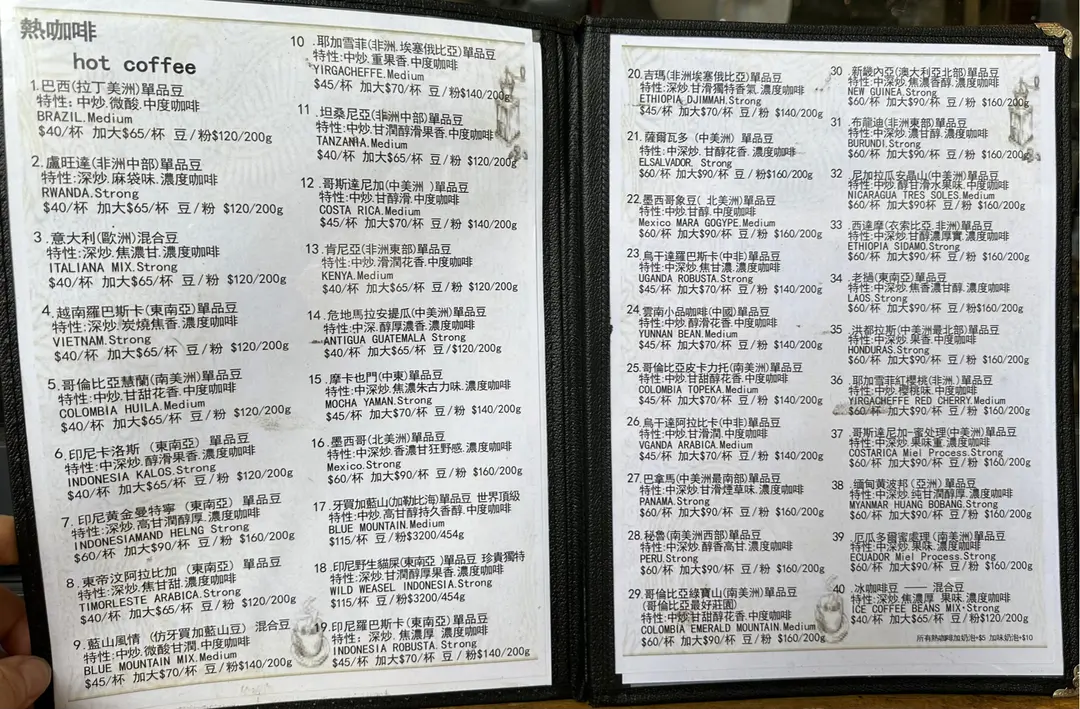 熱咖啡
hot coffee
1.巴西(拉丁美洲)單品豆
特性:中炒.微酸.中度咖啡
BRAZIL.Medium
$40/杯 加大$65/杯 豆/粉$120/200g
2.盧旺達(非洲中部)單品豆
特性:深炒.麻袋味.濃度咖啡
RWANDA.Strong
$40/杯 加大$65/杯 豆/粉 $120/200g
3.意大利(歐洲)混合豆
特性:深炒.焦濃甘.濃度咖啡
ITALIANA MIX.Strong
$40/杯 加大$65/杯 豆/粉 $120/200g
4.越南羅巴斯卡(東南亞)單品豆
特性:深炒.炭燒焦香.濃度咖啡
VIETNAM.Strong
$40/杯 加大$65/杯 豆/粉 $120/200g
5.哥倫比亞慧蘭(南美洲)單品豆
特性:中炒.甘甜花香.中度咖啡
COLOMBIA HUILA.Medium
$40/杯 加大$65/杯 豆/粉 $120/200g
6.印尼卡洛斯 (東南亞) 單品豆
特性:中深炒.醇滑果香.濃度咖啡
INDONESIA KALOS.Strong
$40/杯 加大$65/杯 豆/粉 $120/200g
7.印尼黃金曼特寧 (東南亞) 單品豆
特性:深炒.高甘潤醇厚.濃度咖啡
INDONESIAMAND HELNG Strong
$60/杯 加大$90/杯 豆/粉 $160/200g
8.東帝汶阿拉比加 (東南亞) 單品豆
特性:深炒.焦甘甜.濃度咖啡
TIMORLESTE ARABICA.Strong
$40/杯 加大$65/杯 豆/粉 $120/200g
9.藍山風情 (仿牙買加藍山豆) 混合豆
特性:中炒.微酸甘潤.中度咖啡
BLUE MOUNTAIN MIX.Medium
$45/杯 加大$70/杯 豆/粉$140/200g
10.耶加雪菲(非洲.埃塞俄比亞)單品豆
特性:中炒.重果香.中度咖啡
YIRGACHEFFE.Medium
$45/杯 加大$70/杯 豆/粉$140/200g
11.坦桑尼亞(非洲中部)單品豆
特性:中炒.甘潤醇滑果香.中度咖啡
TANZANIA.Medium
$40/杯 加大$65/杯 豆/粉 $120/200g
12.哥斯達尼加(中美洲 )單品豆
特性:中炒.甘醇滑.中度咖啡
COSTA RICA.Medium
$45/杯 加大$70/杯 豆/粉 $140/200g
13.肯尼亞(非洲東部)單品豆
特性:中炒.滑潤花香.中度咖啡
KENYA.Medium
$40/杯 加大$65/杯 豆/粉 $120/200g
14.危地馬拉安提瓜(中美洲)單品豆
特性:中深.醇厚濃香.濃度咖啡
ANTIGUA GUATEMALA Strong
$40/杯 加大$65/杯 豆/$120/200g
15.摩卡也門(中東)單品豆
特性:中深炒.焦濃朱古力味.濃度咖啡
MOCHA YAMAN.Strong
$45/杯 加大$70/杯 豆/粉 $140/200g
16.墨西哥(北美洲)單品豆
特性:中深炒.香濃甘狂野感.濃度咖啡
Mexico.Strong
$60/杯 加大$90/杯 豆/粉 $160/200g
17.牙買加藍山(加勒比海)單品豆 世界頂級
特性:中炒.高甘醇持久香醇.中度咖啡
BLUE MOUNTAIN.Medium
$115/杯 豆/粉$3200/454g
18.印尼野生貓屎(東南亞 )單品豆 珍貴獨特
特性:深炒.甘潤醇厚果香.濃度咖啡
WILD WEASEL INDONESIA.Strong
$115/杯 豆/粉$3200/454g
19.印尼羅巴斯卡(東南亞)單品豆
特性: 深炒.焦濃厚 濃度咖啡
INDONESIA ROBUSTA.Strong
$45/杯 加大$70/杯 豆/粉$140/200g
20.吉瑪(非洲埃塞俄比亞)單品豆
特性:深炒.甘滑獨特香氣.濃度咖啡
ETHIOPIA DJIMMAH.Strong
$45/杯 加大$70/杯 豆/粉 $140/200g
21.薩爾瓦多 (中美洲) 單品豆
特性:中深炒.甘醇花香.濃度咖啡
ELSALVADOR. Strong
$60/杯 加大$90/杯 豆/粉$160/200g
22.墨西哥象豆( 北美洲)單品豆
特性:中炒.甘醇.中度咖啡
Mexico MARA GOGYPE.Medium
$60/杯 加大$90/杯 豆/粉 $160/200g
23.烏干達羅巴斯卡(中非)單品豆
特性:深炒.焦甘濃.濃度咖啡
UGANDA ROBUSTA.Strong
$45/杯 加大$70/杯 豆/粉 $140/200g
24.雲南小品咖啡(中國)單品豆
特性:中炒.醇滑花香.中度咖啡
YUNNAN BEAN.Medium
$45/杯 加大$70/杯 豆/粉 $140/200g
25.哥倫比亞皮卡力托(南美洲)單品豆
特性:中炒.甘甜醇花香.中度咖啡
COLOMBIA TOPEKA.Medium
$45/杯 加大$70/杯 豆/粉 $140/200g
26.烏干達阿拉比卡(中非)單品豆
特性:中炒.甘滑潤.中度咖啡
VGANDA ARABICA.Medium
$45/杯 加大$70/杯 豆/粉 $140/200g
27.巴拿馬(中美洲最南部)單品豆
特性:中深炒.甘滑煙草味.濃度咖啡
PANAMA.Strong
$60/杯 加大$90/杯 豆/粉 $160/200g
28.秘魯(南美洲西部)單品豆
特性:中深炒.醇香高甘.濃度咖啡
PERU.Strong
$60/杯 加大$90/杯 豆/粉 $160/200g
29.哥倫比亞綠寶山(南美洲)單品豆
(哥倫比亞最好莊園)
特性:中炒.甘甜醇花香.中度咖啡
COLOMBIA EMERALD MOUNTAIN.Medium
$60/杯 加大$90/杯 豆/粉 $160/200g
30.新畿內亞(澳大利亞北部)單品豆
特性:中深炒.焦濃香醇.濃度咖啡
NEW GUINEA.Strong
$60/杯 加大$90/杯 豆/粉 $160/200g
31.布龍迪(非洲東部)單品豆
特性:中深炒.濃甘醇.濃度咖啡
BURUNDI.Strong
$60/杯 加大$90/杯 豆/粉 $160/200g
32.尼加拉瓜安晶山(中美洲)單品豆
特性:中炒.醇甘滑水果味.中度咖啡
NICARAGUA TRES SOLES.Medium
$60/杯 加大$90/杯 豆/粉 $160/200g
33.西達摩(衣索比亞.非洲)單品豆
特性:中深炒.甘醇濃厚實.濃度咖啡
ETHIOPIA SIDAMO.Strong
$60/杯 加大$90/杯 豆/粉 $160/200g
34.老撾(東南亞)單品豆
特性:中深炒.焦香濃甘醇.濃度咖啡
LAOS.Strong
$60/杯 加大$90/杯 豆/粉$160/200g
35.洪都拉斯(中美洲最北部)單品豆
特性:中深炒.果香.中度咖啡
HONDURAS.Strong
$60/杯 加大$90/杯 豆/粉 $160/200g
36.耶加雪菲紅櫻桃(非洲.)單品豆
特性:中炒.櫻桃味.中度咖啡
YIRGACHEFFE RED CHERRY.Medium
$60/杯 加大$90/杯 豆/粉 $160/200g
37.哥斯達尼加一蜜处理(中美洲)單品豆
特性:中深炒.果味重.濃度咖啡
COSTARICA Miel Process.Strong
$60/杯 加大$90/杯 豆/粉 $160/200g
38.緬甸黄波邦(亞洲)單品豆
特性:中深炒.純甘潤醇厚.濃度咖啡
MYANMAR HUANG BOBANG.Strong
$60/杯 加大$90/杯 豆/粉 $160/200g
39.厄瓜多爾蜜處理(南美洲)單品豆
特性:中深炒.果味.濃度咖啡
ECUADOR Miel Process.Strong
$60/杯 加大$90/杯 豆/粉 $160/200g
40.冰咖啡豆 —— 混合豆
特性:深炒.焦濃厚 果味.濃度咖啡
ICE COFFEE BEANS MIX·Strong
$40/杯 加大$65/杯 豆/粉$120/200g
所有熱咖啡加奶泡+$5 加味奶泡+$10